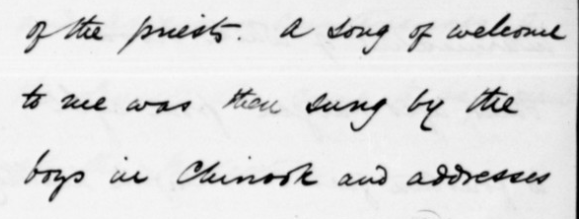 of the priests. A song of welcome
to me was then sung by the
boys in Chinook and addresses